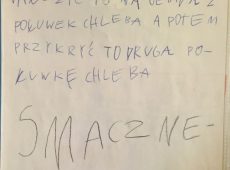 Z
POŁUWEK CHLEBA A POTEM
PRZYKRYĆ TO DRUGĄ PO-
ŁUWKĘ CHLEBA
SMACZNE-